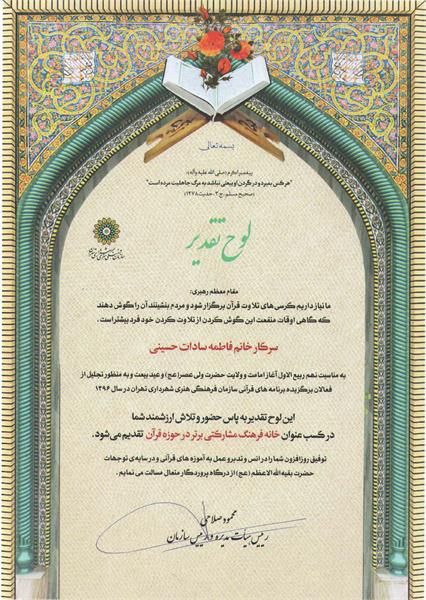 بسمه تعالی
پیغمبر اکرم (صلی الله علیه وآله):
"هر کس بمیرد و در گردن او بیعتی نباشد به مرگ جاهلیت مرده است"
(صحیح مسلم، ج۳، حدیث ۱۴۷۸)
لوح تقدیر
مقام معظم رهبری:
ما نیاز داریم کرسی های تلاوت قرآن برگزار شود و مردم بنشینند آن را گوش دهند
که گاهی اوقات منفعت این گوش کردن از تلاوت کردن خود فرد بیشتر است.
سرکار خانم فاطمه سادات حسینی
به مناسبت نهم ربیع الاول آغاز امامت و ولایت حضرت ولی عصر (عج) و عید بیعت و به منظور تجلیل از
فعالان برگزیده برنامه های قرآنی سازمان فرهنگی هنری شهرداری تهران در سال ۱۳۹۶
این لوح تقدیر به پاس حضور و تلاش ارزشمند شما
در کسب عنوان خانه فرهنگ مشارکتی برتر در حوزه قرآن تقدیم می شود.
توفیق روزافزون شما را در انس و تدبر و عمل به آموزه های قرآنی و در سایه ی توجهات
حضرت بقیه الله الاعظم (عج) از درگاه پروردگار متعال مسالت می نمایم.
محمود صلاحی
رییس هیأت مدیره و رییس سازمان